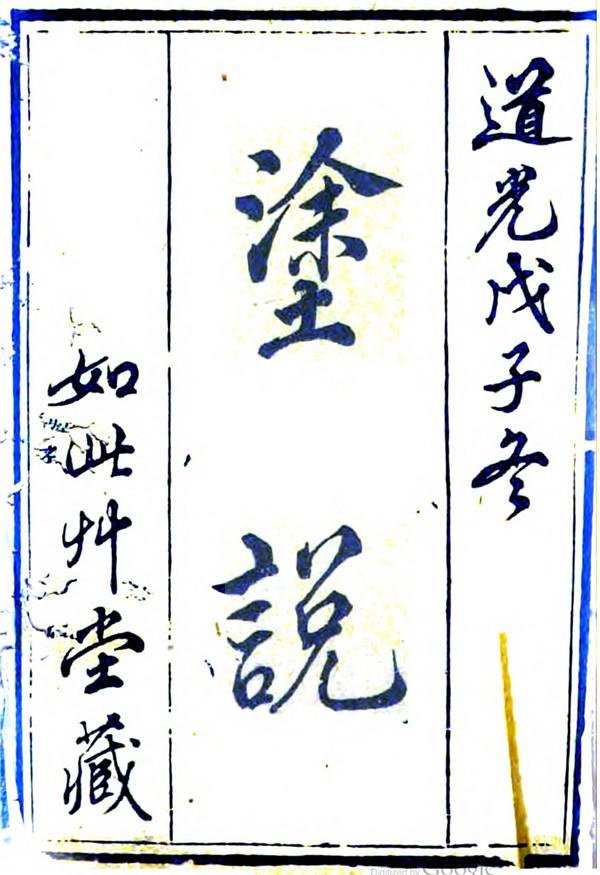 道光戊子冬
塗說
如此艸堂藏
Digitized by Google